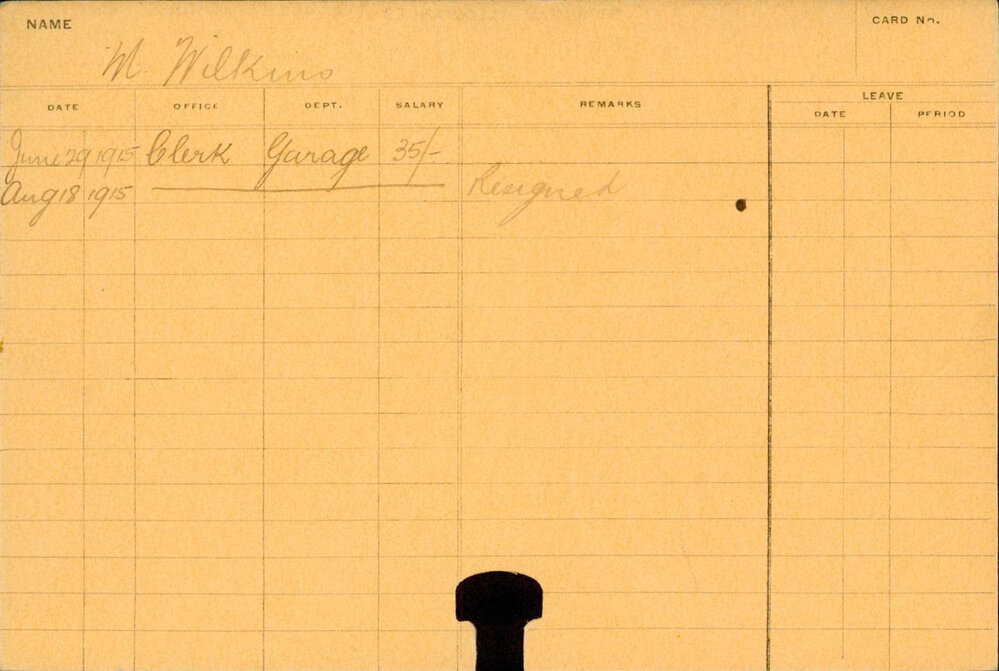 NAME
CARD No.
M. Wilkins
DATE OFFICE DEPT. SALARY REMARKS LEAVE
DATE PERIOD
June 29 1915 Clerk Garage 35/-
Aug 18 1915 Resigned